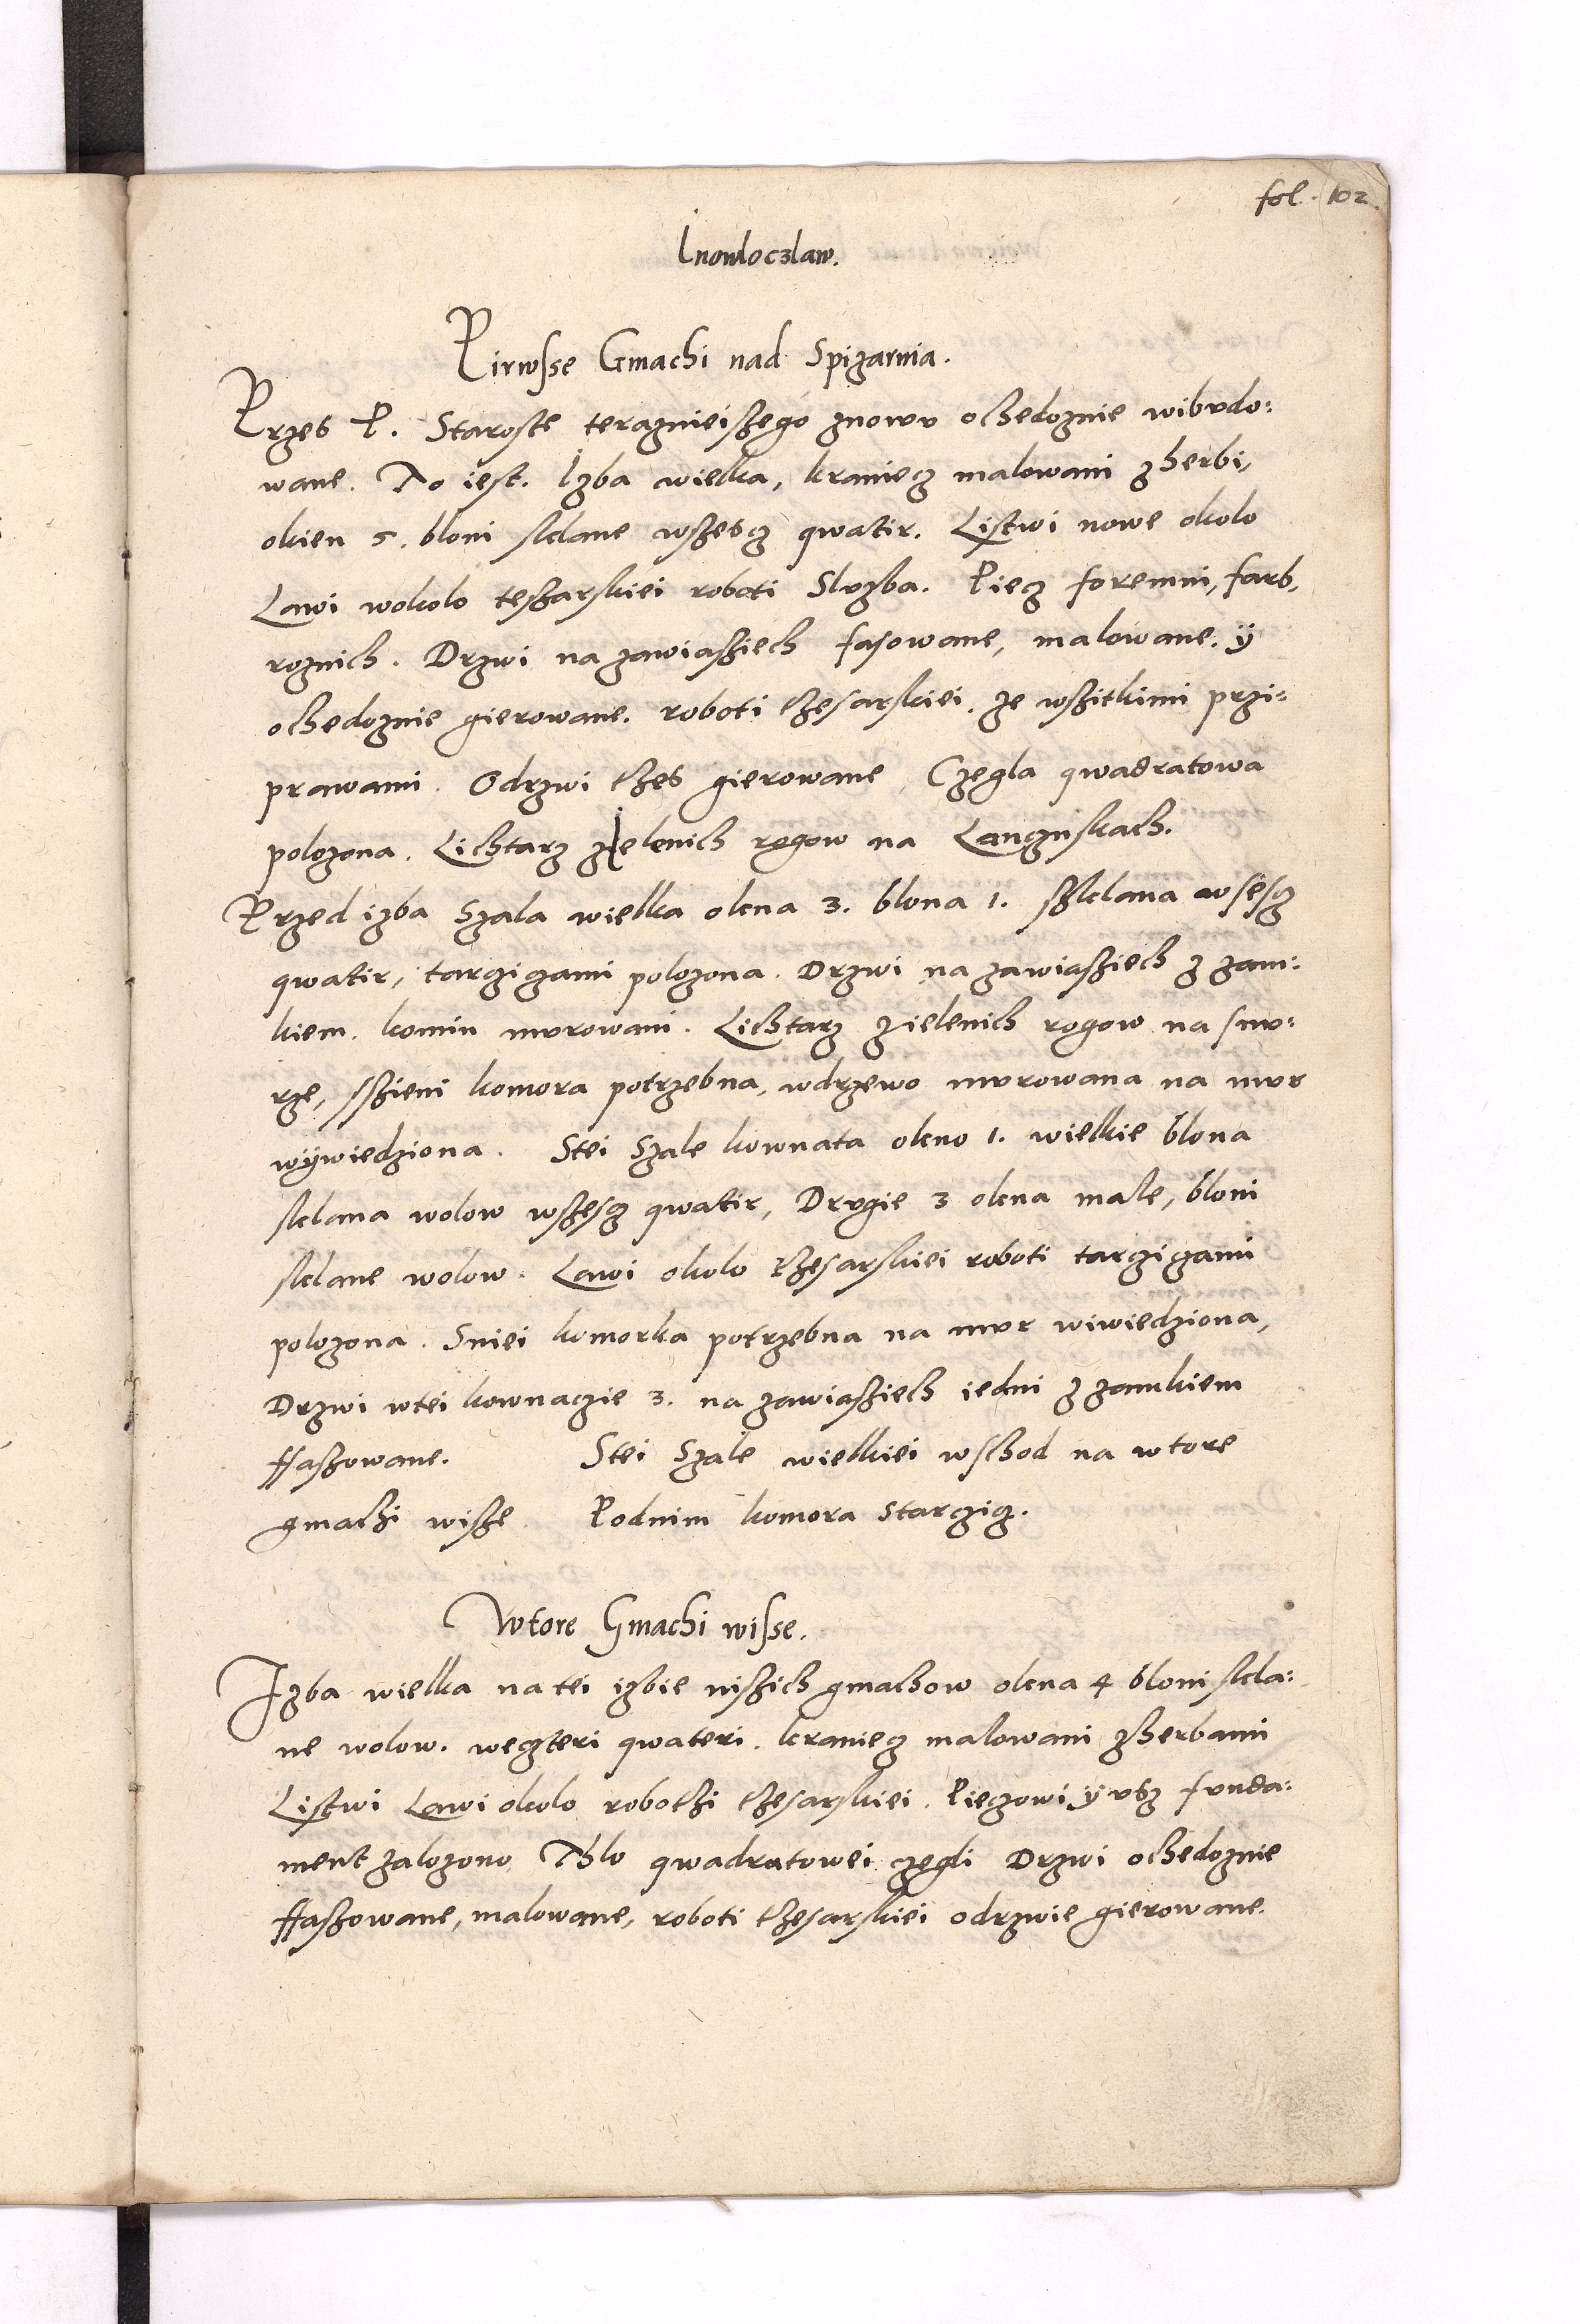 fol. 102.
Inowloczlaw.
Pirwsse Gmachi nad Spizarnia.
Przes P. Staroste teraznieiszego znowu ochedoznie wibudo:
wane. To iest. Izba wielka, kraniecz malowani z herbi,
okien 5. bloni sklane wszescz qwatir. Listwi nowe okolo
Lawi wokolo teszarskiei roboti Sluzba. Piecz foremni, farb,
roznich. Drzwi na zawiasziech fasowane, malowane. ÿ
ochedoznie gierowane. roboti thesarskiei. ze wszitkimi przi:
prawami. Odrzwi thes gierowane, Czegla qwadratowa
polozona. Lichtarz zielenich rogow na Lanczuskach.
Przed izba Szala wielka okna 3. blona 1. szklana w sescz
qwatir, tarczizami polozona. Drzwi na zawiasziech z zam:
kiem. komin murowani. Lichtarz z ielenich rogow na snu:
rze, sszieni komora potrzebna, wdrzewo murowana na mur
wÿwiedziona. Stei Szale kownata okno 1. wielkie blona
sklana wolow wszescz qwatir, Drugie 3 okna male, bloni
sklane wolow. Lawi okolo thesarskiei roboti tarczizami
polozona. Sniei komorka potrzebna na mur wiwiedziona,
Drzwi wtei kownaczie 3. na zawiasziech iedni z zamkiem
ffaszowane. Stei Szale wielkiei wschod na wtore
gmachi wisze. Podnim komora starczicz.
Wtore Gmachi wisse.
Izba wielka na tei izbie niszich gmachow okna 4 bloni skla:
ne wolow. weczteri qwateri. kraniecz malowani z herbami
Listwi Lawi okolo robothi thesarskiei. Pieczowi ÿ usz funda:
ment zalozono. Thlo qwadratowei czegli Drzwi ochedoznie
ffaszowane, malowane, roboti thesarskiei odrzwie gierowane.